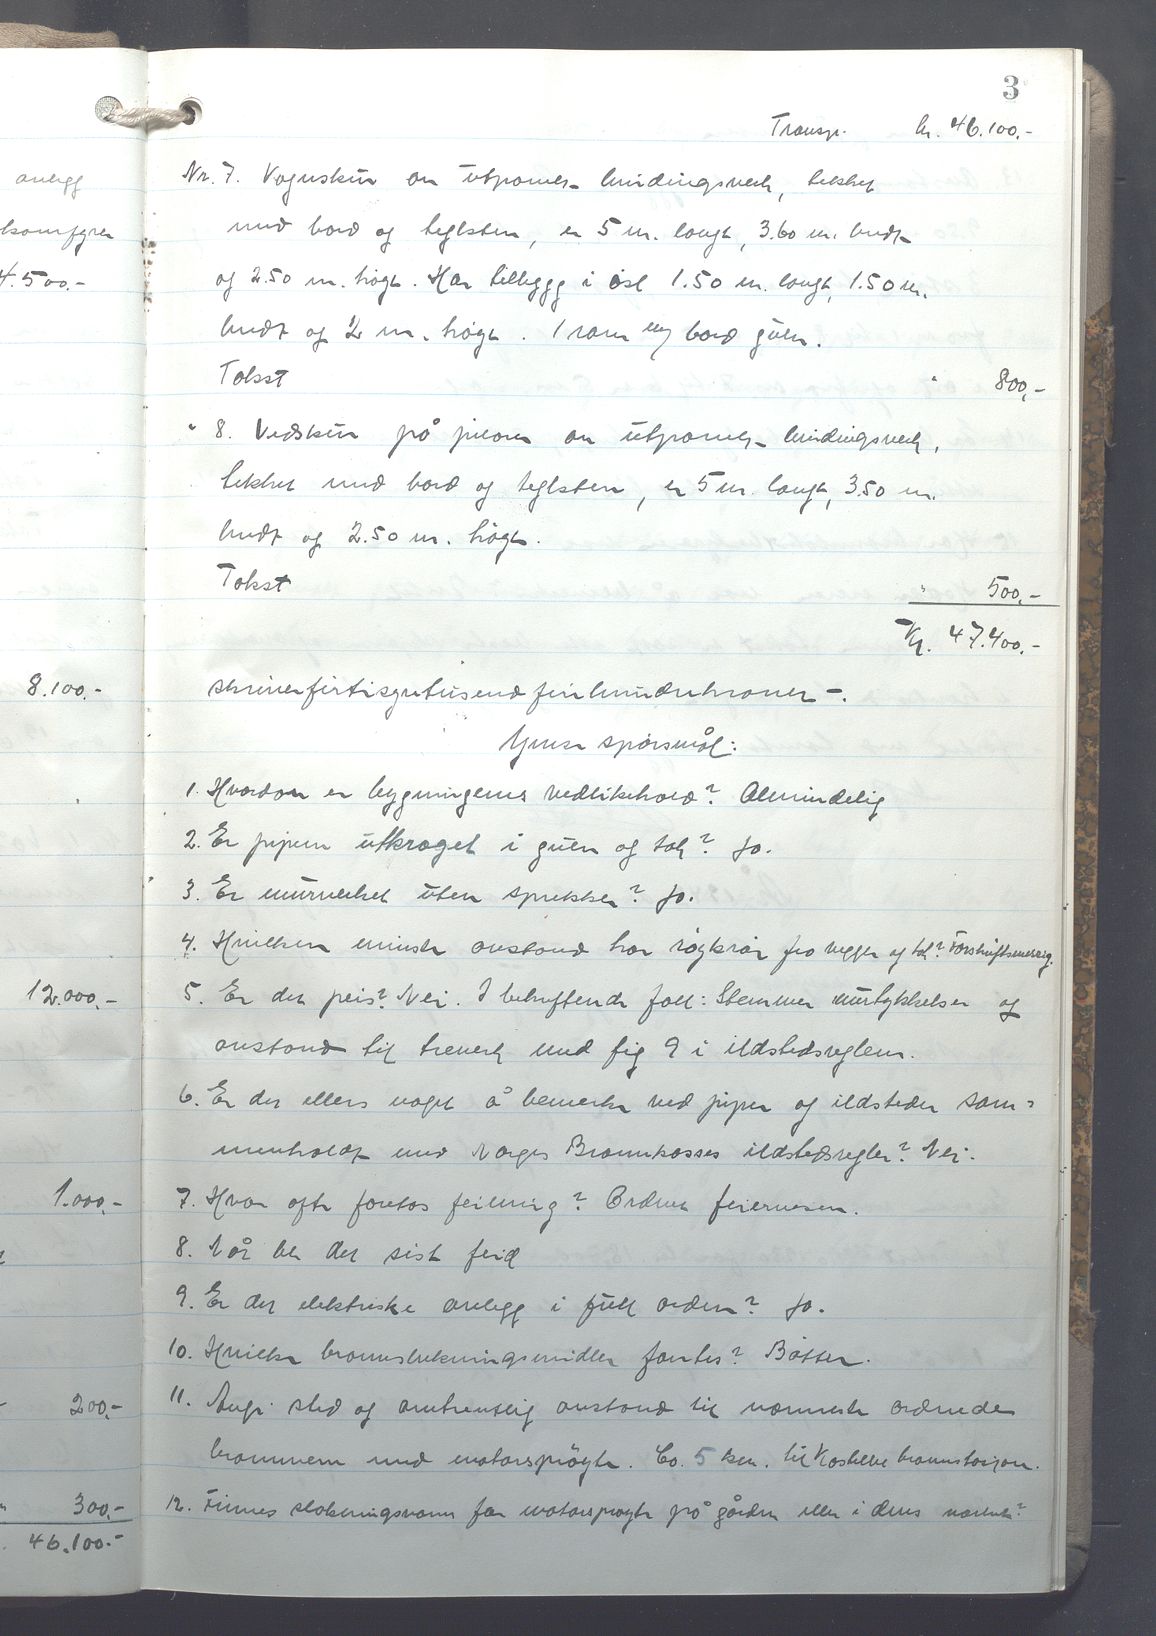 anlegg
komfyrer
4.500.-
8.100.-
12.000,-
1.000,-
200,-
300,-
46.100.-
3
Transp. kr. 46.100,-
Nr. 7. Vognskur av utpanelt bindingsverk, tekket
med bord og teglsten, er 5 m. langt, 3.60 m. bredt
og 2.50 m. högt. Har tillegg i öst 1.50 m. langt, 1.50 m.
bredt og 2 m. högt. 1 rom m/ bord gulv.
Takst " 800,-
" 8. Vedskur på jordet av utpanelt bindingsverk,
tekket med bord og teglsten, er 5 m. langt, 3.50 m.
bredt og 2.50 m. högt.
Takst " 500,-
Kr. 47.400,-
skriver förtisyvtusend firehundrekroner -.
Ymse spörsmål:
1. Hvordan er bygningens vedlikehold? Almindelig
2. Er pipen utkraget i gulv og tak? Ja.
3. Er murverket uten sprekker? Ja.
4. Hvilken minste avstand har rögkrör fra vegger og tak? Forskriftsmessig.
5. Er det peis? Nei. I bekreftende fall: Stemmer murtykkelser og
avstand til treverk med fig 9 i ildstedsreglene.
6. Er der ellers noget å bemerke ved piper og ildsteder sam=
menholdt med Norges Brannkasses ildstedsregler? Nei.
7. Hvor ofte foretas feiing? Ordnet feiervesen.
8. Når ble det sist feid
9. Er det elektriske anlegg i full orden? Ja.
10. Hvilke brannslukningsmidler fantes? Bötter.
11. Angi sted og omtrentlig avstand til nærmeste ordnede
brannvern med motorspröyte. Ca. 5 km. til brannstasjon.
12. Finnes slokningsvann for motorspröyte på gården eller i dens nærhet?